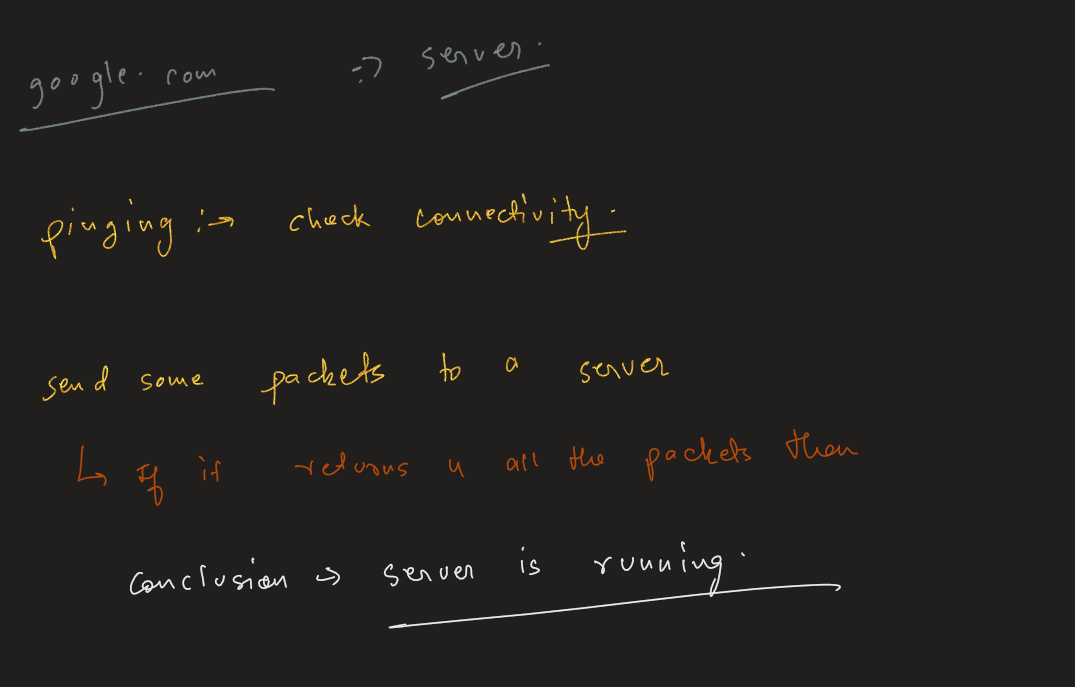 google.com => server.
pinging :→ check connectivity.
send some packets to a server
↳ If it returns u all the packets then
Conclusion → server is running.